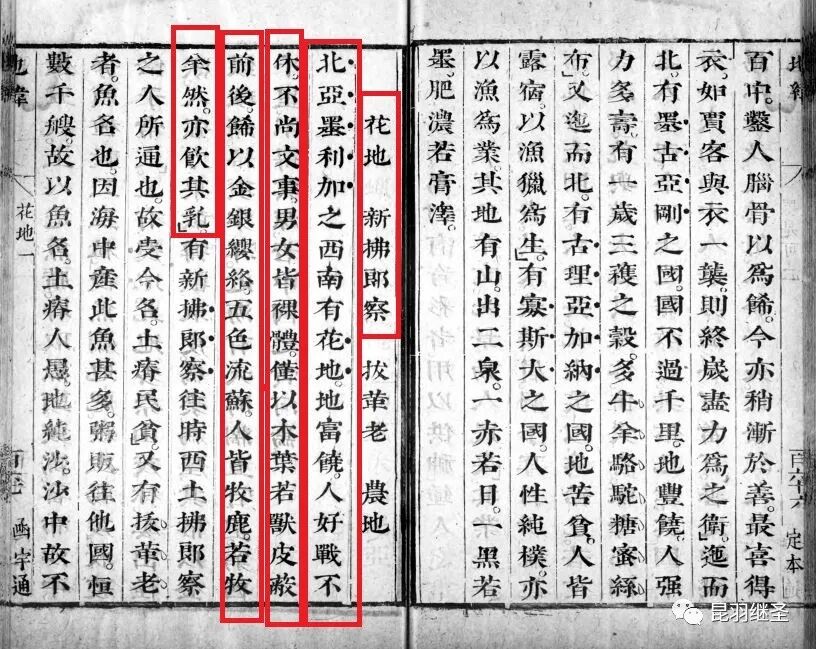 地緯
定本
百中。鑿人腦骨以爲餙。今亦稍漸於善。最喜得
衣。如賈客與衣一襲。則終歲盡力爲之衛。迤而
北。有墨古亞剛之國。國不過千里。地豐饒。人强
力多壽。有一歲三穫之榖。多牛羊駱駝糖蜜絲
布。又迤而北。有古理亞加納之國。地苦貧。人皆
露宿。以漁獵爲生。有寡斯大之國。人性純樸。亦
以漁爲業。其地有山。出二泉。一赤若日。一黑若
墨。肥濃若膏澤。
花地 新拂郎察 拔革老 農地
北亞墨利加之西南有花地。地富饒。人好戰不
休。不尚文事。男女皆裸體。僅以木葉若獸皮蔽
前後。餙以金銀纓絡。五色流蘇。人皆牧鹿。若牧
羊然。亦飲其乳。有新拂郎察。往時西土拂郎察
之人所通也。故受今名。土瘠民貧。又有拔革老
者。魚名也。因海中產此魚甚多。粥販往他國。恒
數千艘。故以魚名。土瘠人愚。地純沙。沙中故不
地緯
花地一
函宇通
昆羽继圣